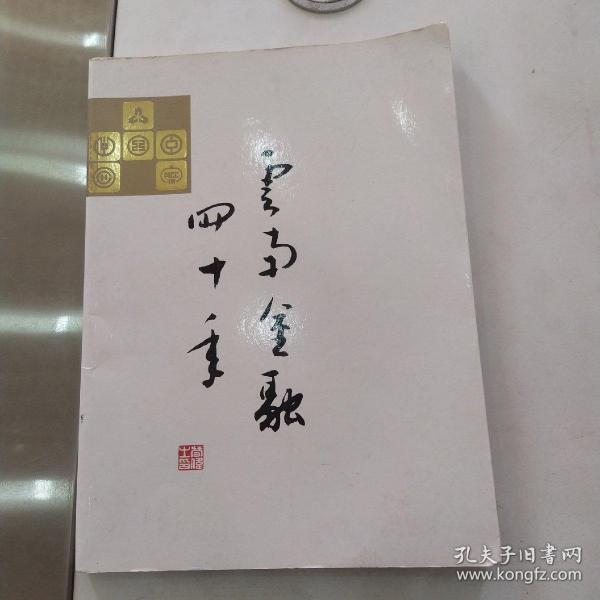 雲南金融
四十年
PICC
孔夫子旧書网
www.kongfz.com